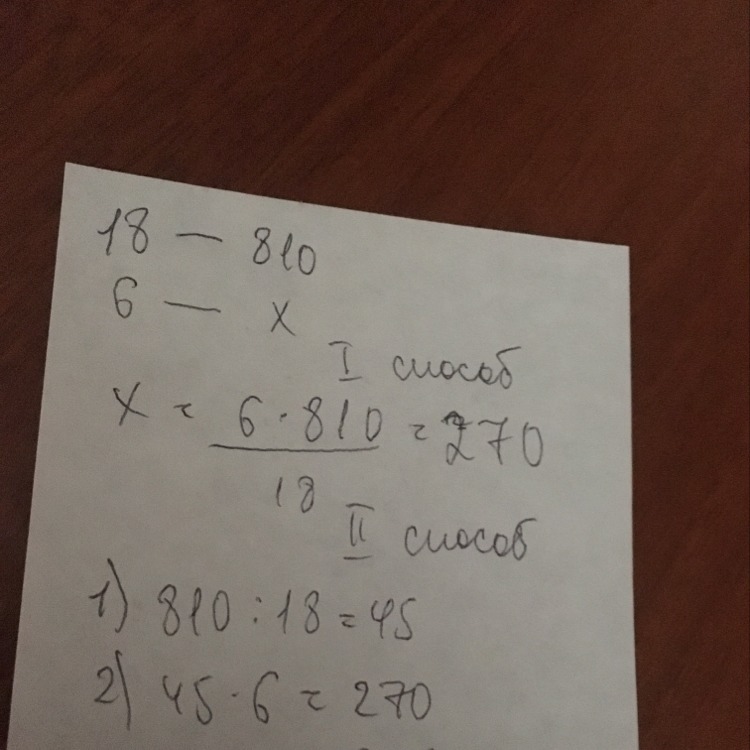 18 — 810
6 — x
I способ
x = 6 · 810 / 18 = 270
II способ
1) 810 : 18 = 45
2) 45 · 6 = 270